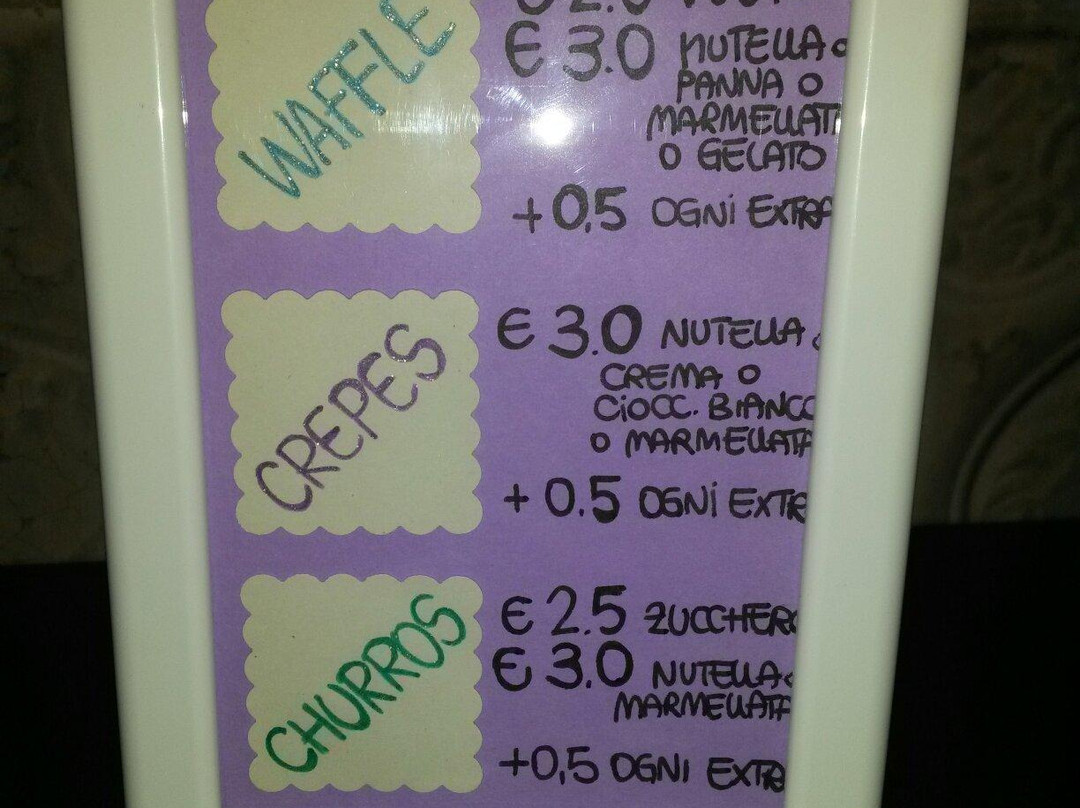 WAFFLE
€ 3.0 NUTELLA o
PANNA O
MARMELLAT
O GELATO
+0,5 OGNi EXTRA
CREPES
€ 3.0 NUTELLA o
CREMA O
CiOCC. BiANCO
O MARMELLATA
+0.5 OGNi EXTR
CHURROS
€ 2.5 ZUCCHERO
€ 3.0 NUTELLA o
MARMELLATA
+0,5 OGNI EXTRA